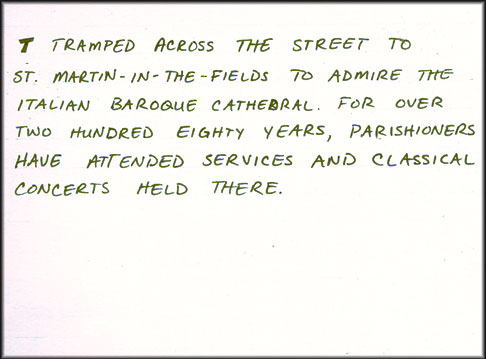 T TRAMPED ACROSS THE STREET TO
ST. MARTIN-IN-THE-FIELDS TO ADMIRE THE
ITALIAN BAROQUE CATHEDRAL. FOR OVER
TWO HUNDRED EIGHTY YEARS, PARISHIONERS
HAVE ATTENDED SERVICES AND CLASSICAL
CONCERTS HELD THERE.